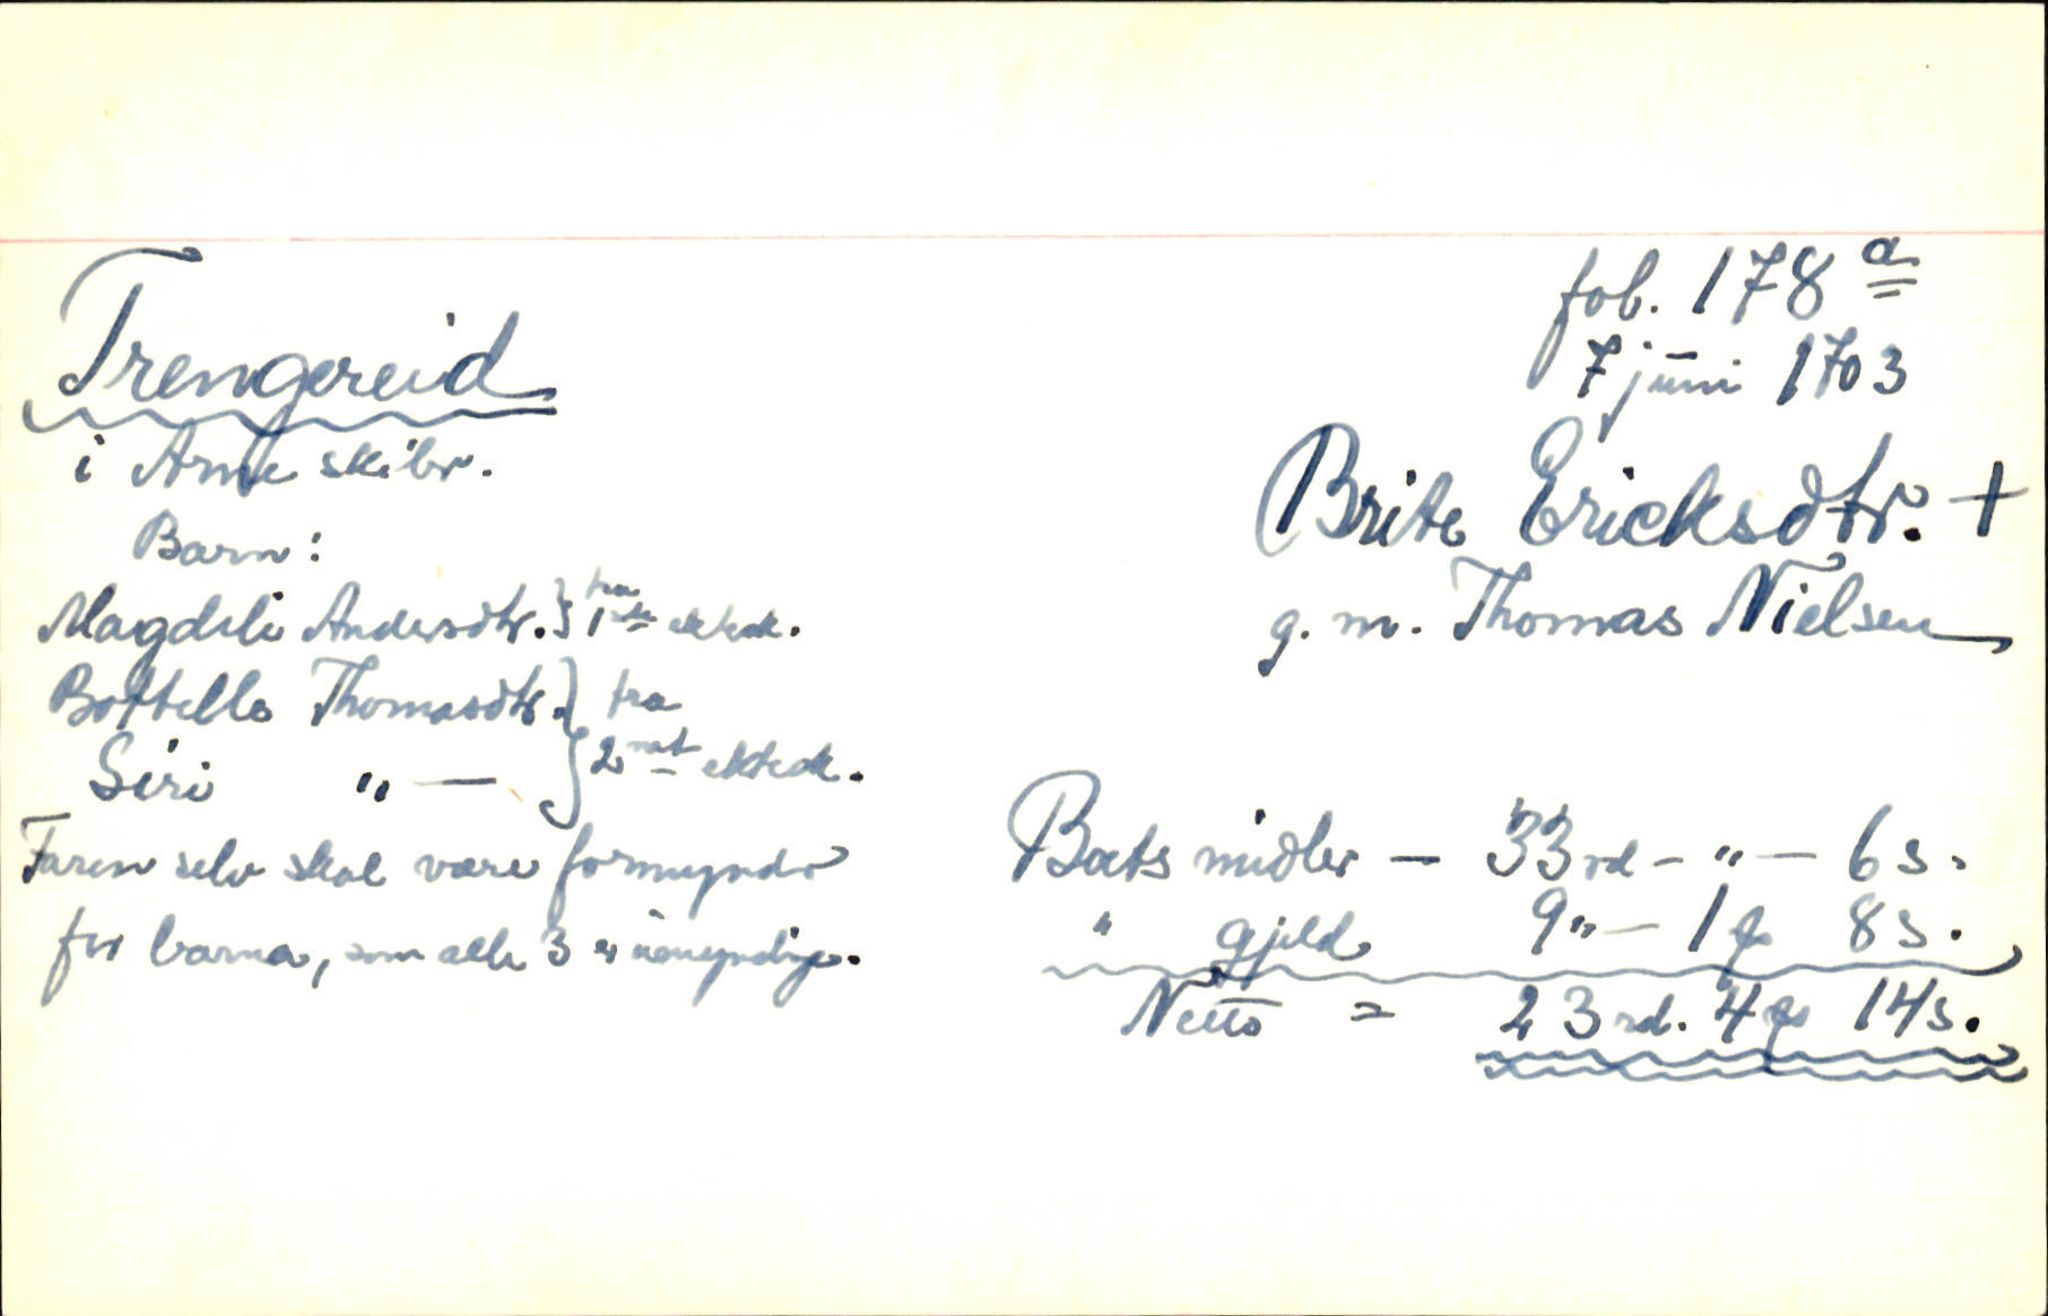 Trengereid
i Arne skibr.
Barn:
Magdeli Andersdtr. } fra 1ste ektesk.
Bottello Thomasdtr. } fra
Siri " — } 2net ektesk.
Faren selv skal være formynder
for barna, som alle 3 er umyndige.
fol. 178 a
7 juni 1703
Brite Ericksdtr. +
g. m. Thomas Nielsen
Boets midler — 33 rd - " — 6 s.
" gjeld 9 " — 1 # 8 s.
Netto = 23 rd. 4 # 14 s.